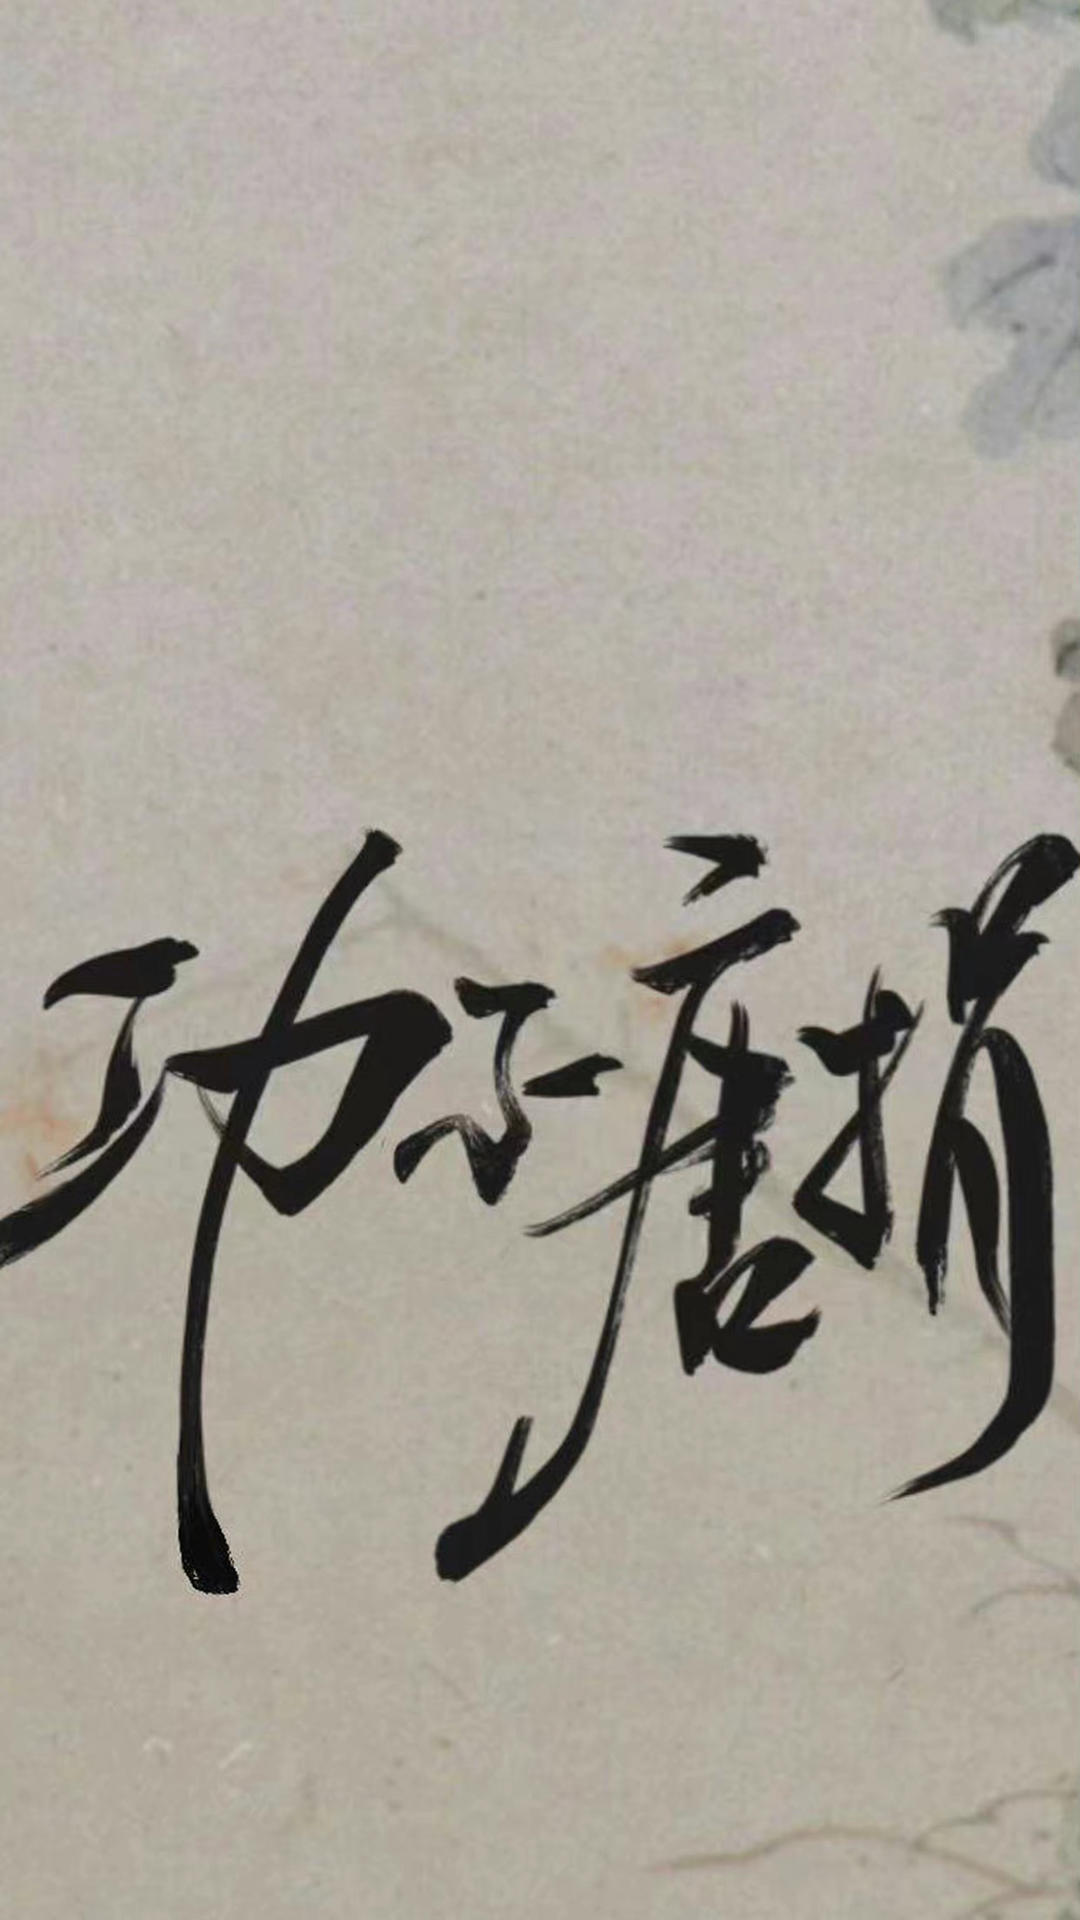 功不唐捐